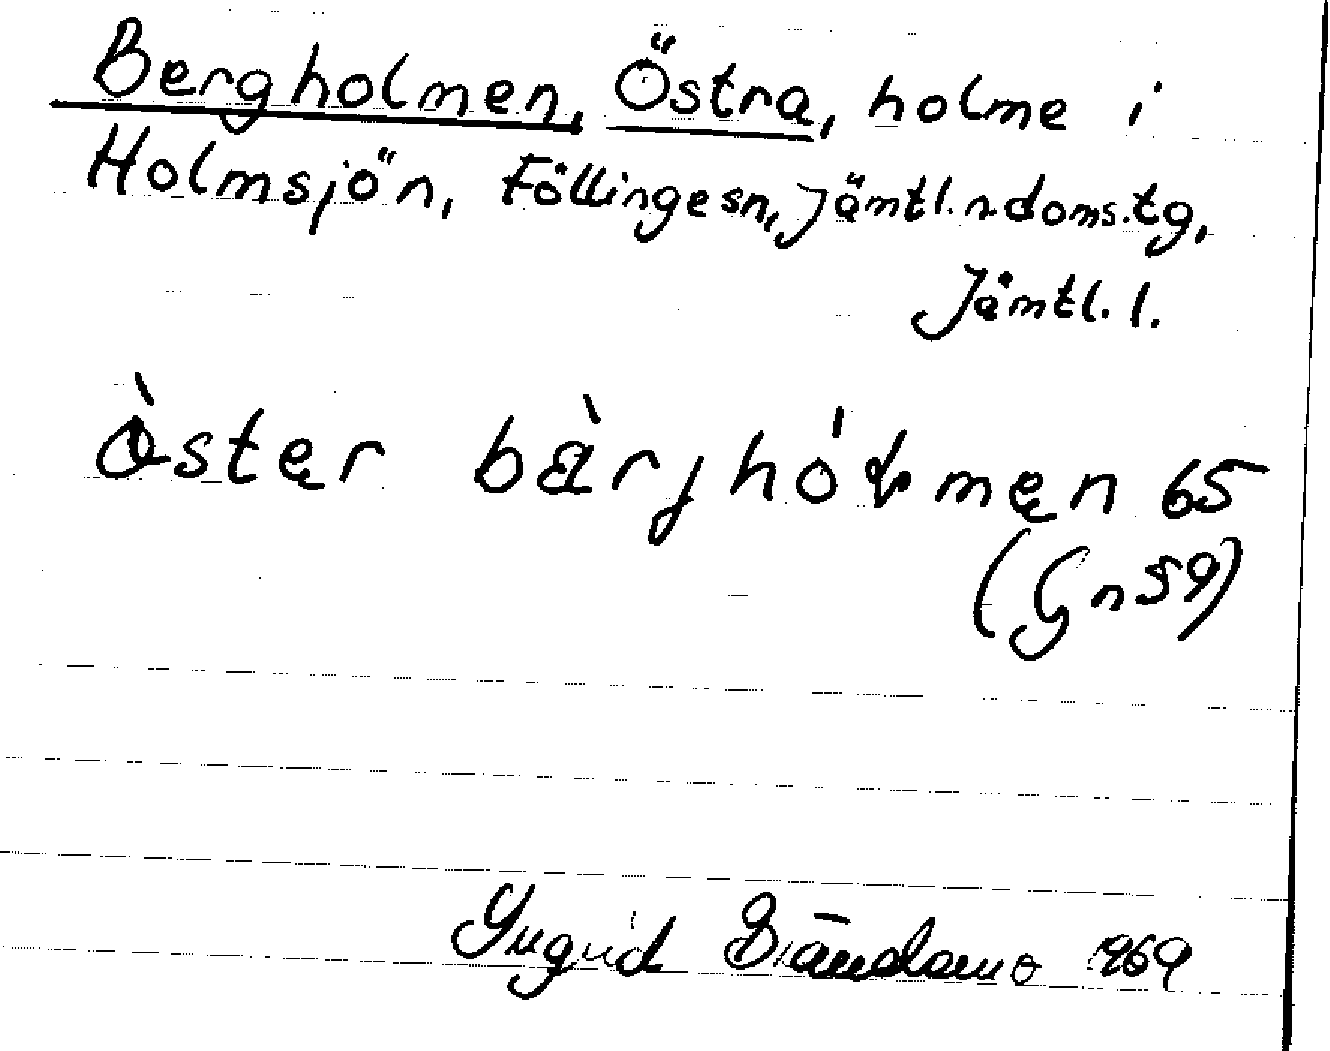 Bergholmen, Östra, holme i
Holmsjön, Föllinge sn, Jämtl. n. doms. tg,
Jämtl. l.
òster bàrjhó men 65
(Gn 59)
Ingrid 1969